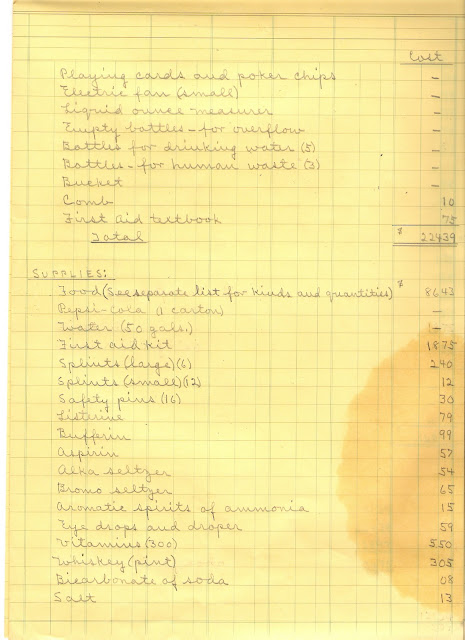 Cost
Playing cards and poker chips –
Electric fan (small) –
Liquid ounce measurer –
Empty bottles – for overflow –
Bottles for drinking water (5) –
Bottles – for human waste (3) –
Bucket –
Comb 10
First aid textbook 75
Total $ 22439
SUPPLIES:
Food (See separate list for kinds and quantities) $ 8643
Pepsi-Cola (1 carton) –
Water (50 gals.) –
First aid kit 1875
Splints (large) (6) 240
Splints (small) (12) 12
Safety pins (16) 30
Listerine 79
Bufferin 99
Aspirin 57
Alka seltzer 54
Bromo seltzer 65
Aromatic spirits of ammonia 15
Eye drops and droper 59
Vitamins (300) 550
Whiskey (pint) 305
Bicarbonate of soda 08
Salt 13